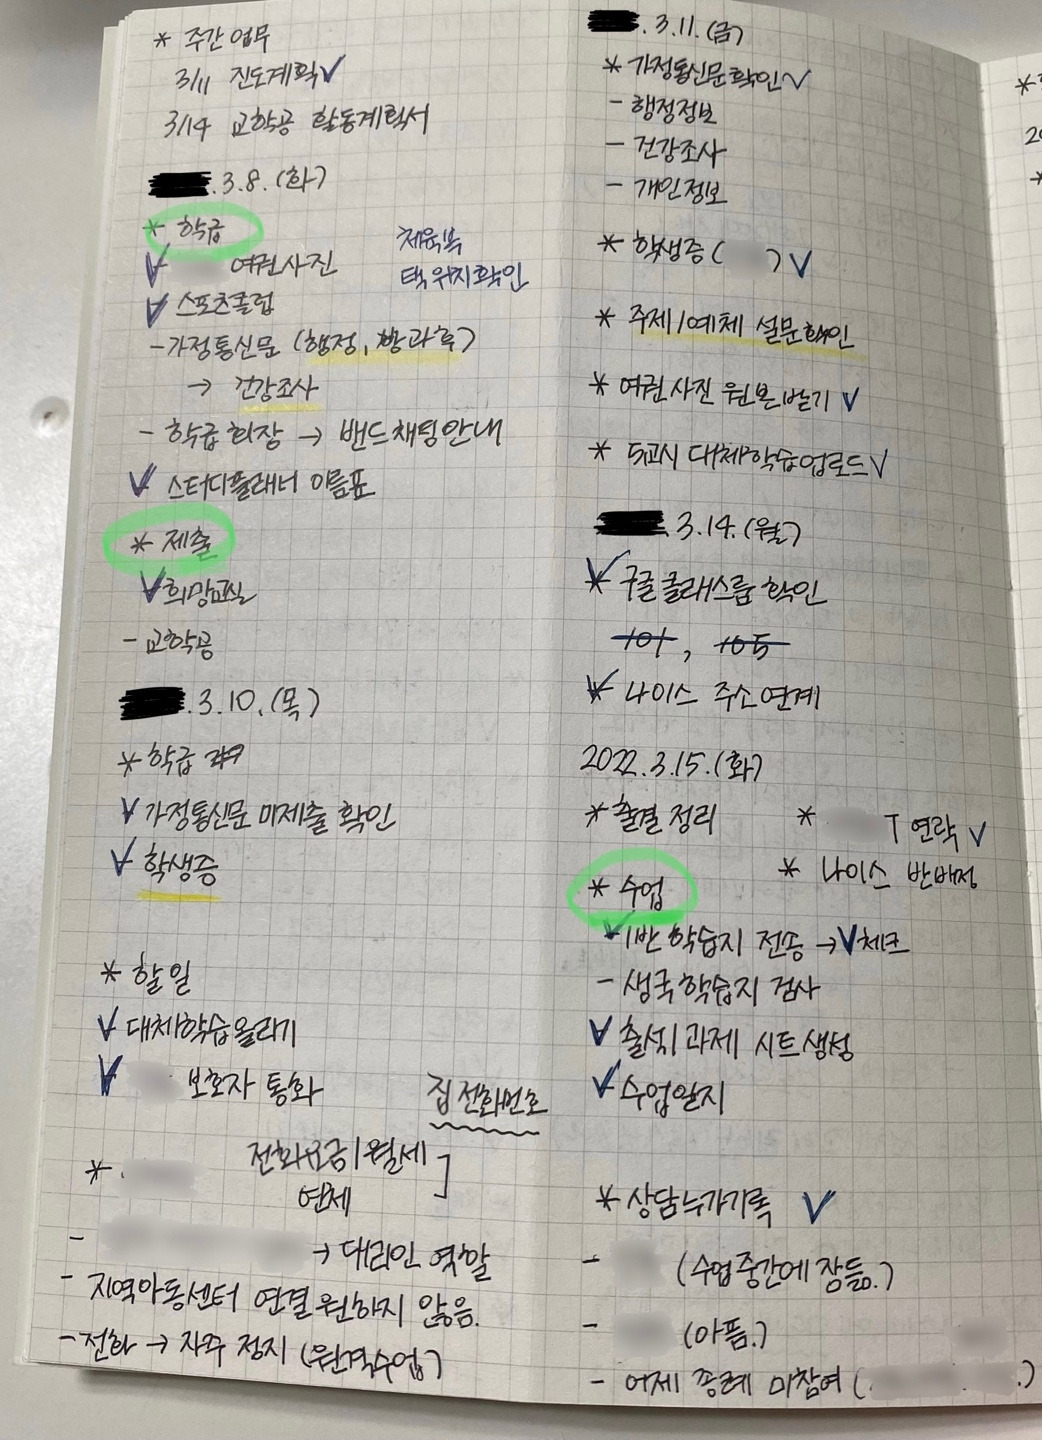 * 주간 업무
3/11 진도계획
3/14 교학공 활동계획서
.3.8.(화)
* 학급
여권사진
체육복
택 위치확인
스포츠클럽
- 가정통신문 (행정, 방과후)
→ 건강조사
- 학급 회장 → 밴드 채팅안내
스터디플래너 이름표
* 제출
희망교실
- 교학공
.3.10.(목)
* 학급
가정통신문 미제출 확인
학생증
* 할 일
대체학습 올리기
보호자 통화
집 전화번호
* 전화요금/월세
연체
- → 대리인 역할
- 지역아동센터 연결 원하지 않음.
- 전화 → 자주 정지 (원격수업)
.3.11.(금)
* 가정통신문 확인
- 행정정보
- 건강조사
- 개인정보
* 학생증 ( )
* 주제/예체 설문확인
* 여권사진 원본받기
* 5교시 대체학습업로드
.3.14.(월)
* 구글 클래스룸 확인
101, 105
* 나이스 주소연계
2022.3.15.(화)
* 출결 정리
* T 연락
* 나이스 반배정
* 수업
1반 학습지 전송 → 체크
- 생국 학습지 검사
출석/과제 시트생성
수업일지
* 상담누가기록
- (수업 중간에 잠듦.)
- (아픔.)
- 어제 종례 미참여 ( .)